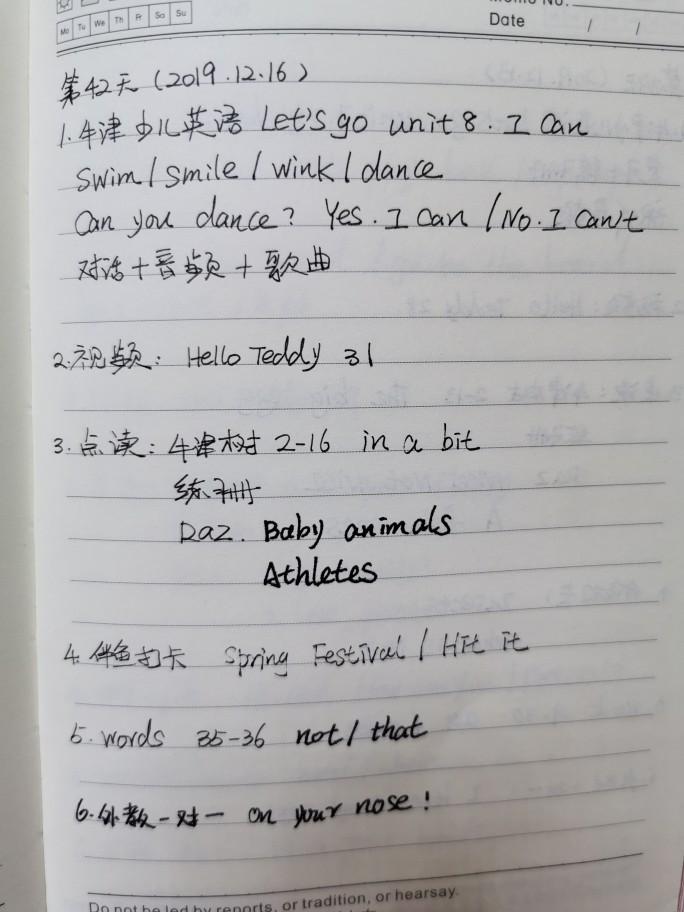 Mo Tu We Th Fr Sa Su
Memo No.
Date / /
第42天（2019.12.16）
1.牛津少儿英语 Let's go unit 8. I can
swim / smile / wink / dance
Can you dance? Yes. I can / No. I can't
对话+音频+歌曲
2.视频: Hello Teddy 31
3.点读: 牛津树 2-16 in a bit
练习册
Raz. Baby animals
Athletes
4.伴鱼打卡 Spring Festival / Hit it
5.words 35-36 not / that
6.外教一对一 on your nose!
Do not be led by reports, or tradition, or hearsay.